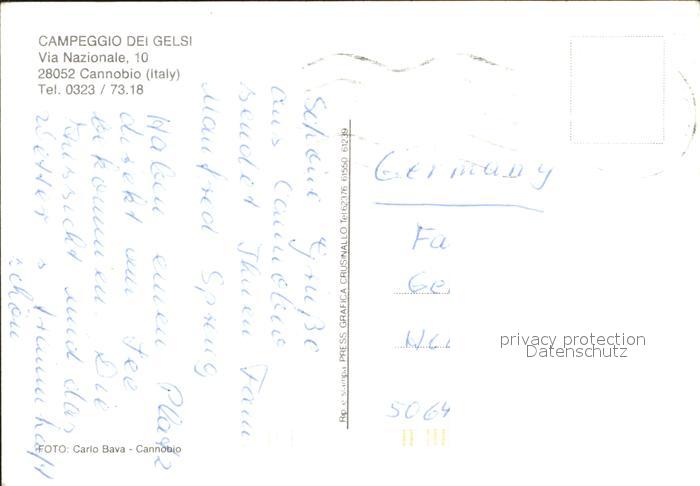 CAMPEGGIO DEI GELSI
Via Nazionale, 10
28052 Cannobio (Italy)
Tel. 0323 / 73.18
Schöne Grüße
aus Cannobio
sendet Ihnen Fam
Manfred
Haben einen Platz
direkt am See
bekommen. Die
Aussicht und das
Wetter s traumhaft
schön
Rip. e stampa PRESS GRAFICA CRUSINALLO Tel. 62376 61550 61239
Germany
Fa
Ge
5064
privacy protection
Datenschutz
FOTO: Carlo Bava - Cannobio